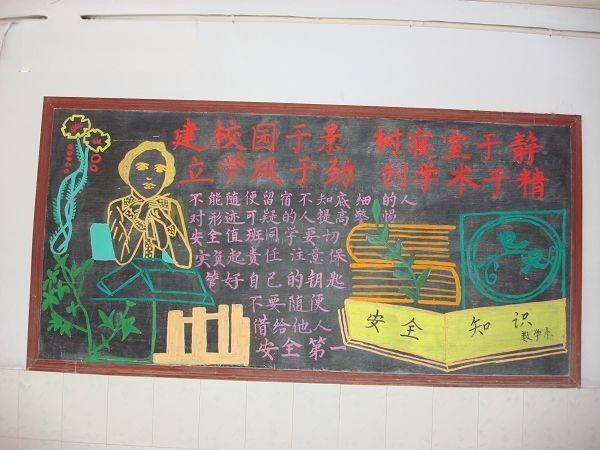 建校园于景 树寝室于静
立学风于勤 创学术于精
不能随便留宿不知底细的人
对形迹可疑的人提高警惕
安全值班同学要切
实负起責任 注意保
管好自己的钥匙
不要随便
借给他人
安全第一
安全知识
数学系